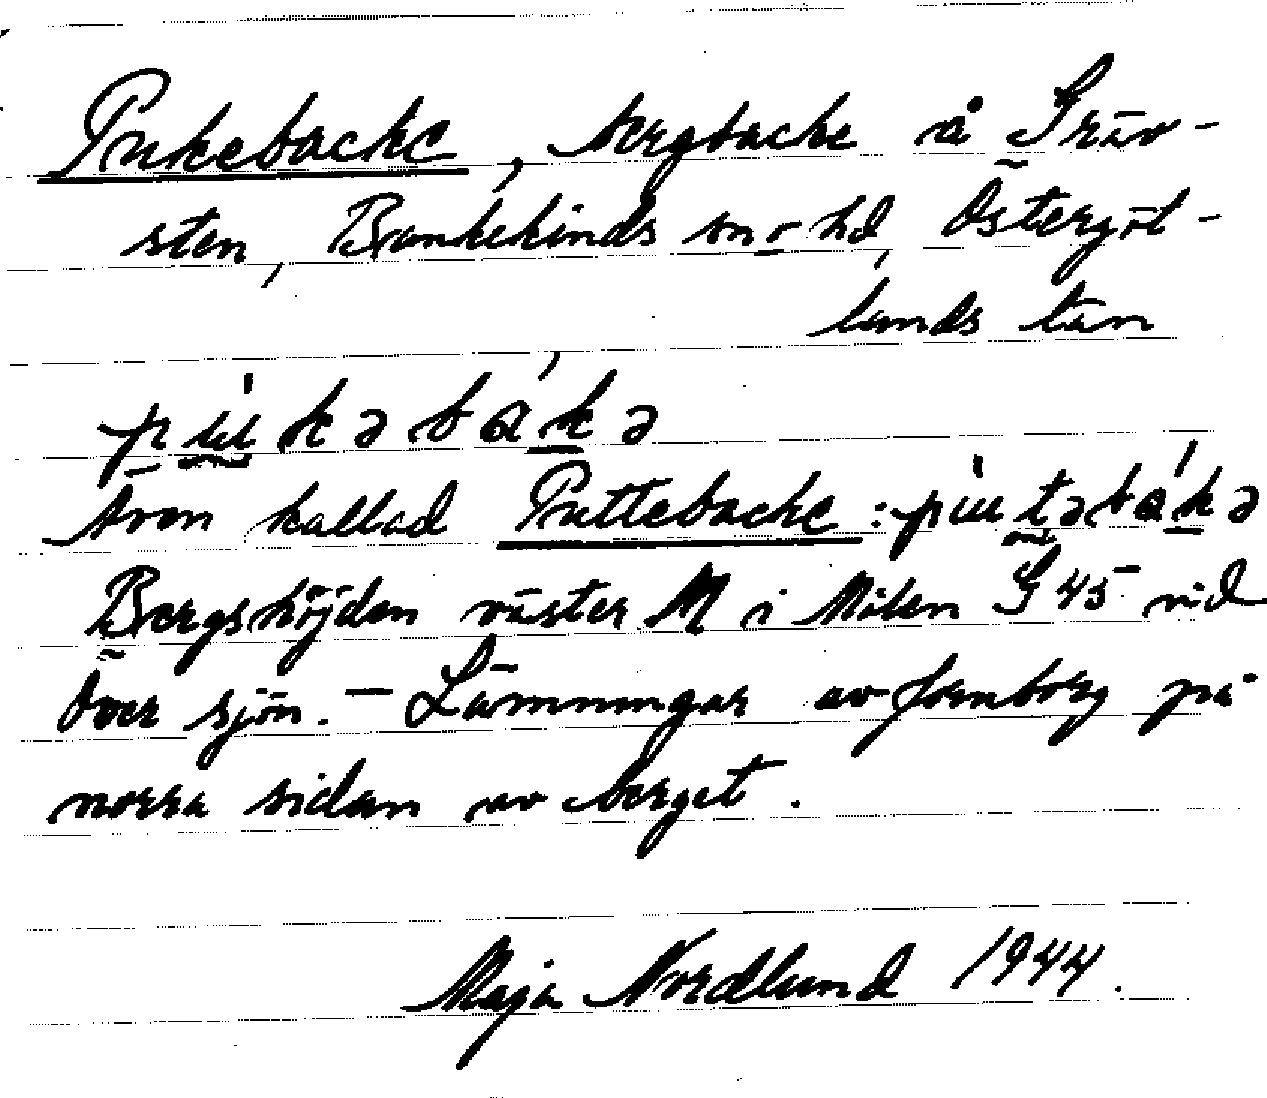 Pukebacke, bergbacke å Gräv-
sten, Bankekinds sn o hd, Östergöt-
lands län
Även kallad Puttebacke :
Bergshöjden väster M i Målen G 45 vid
Över sjön. — Lämningar av fornborg på
norra sidan av berget.
Maja Nordlund 1944.